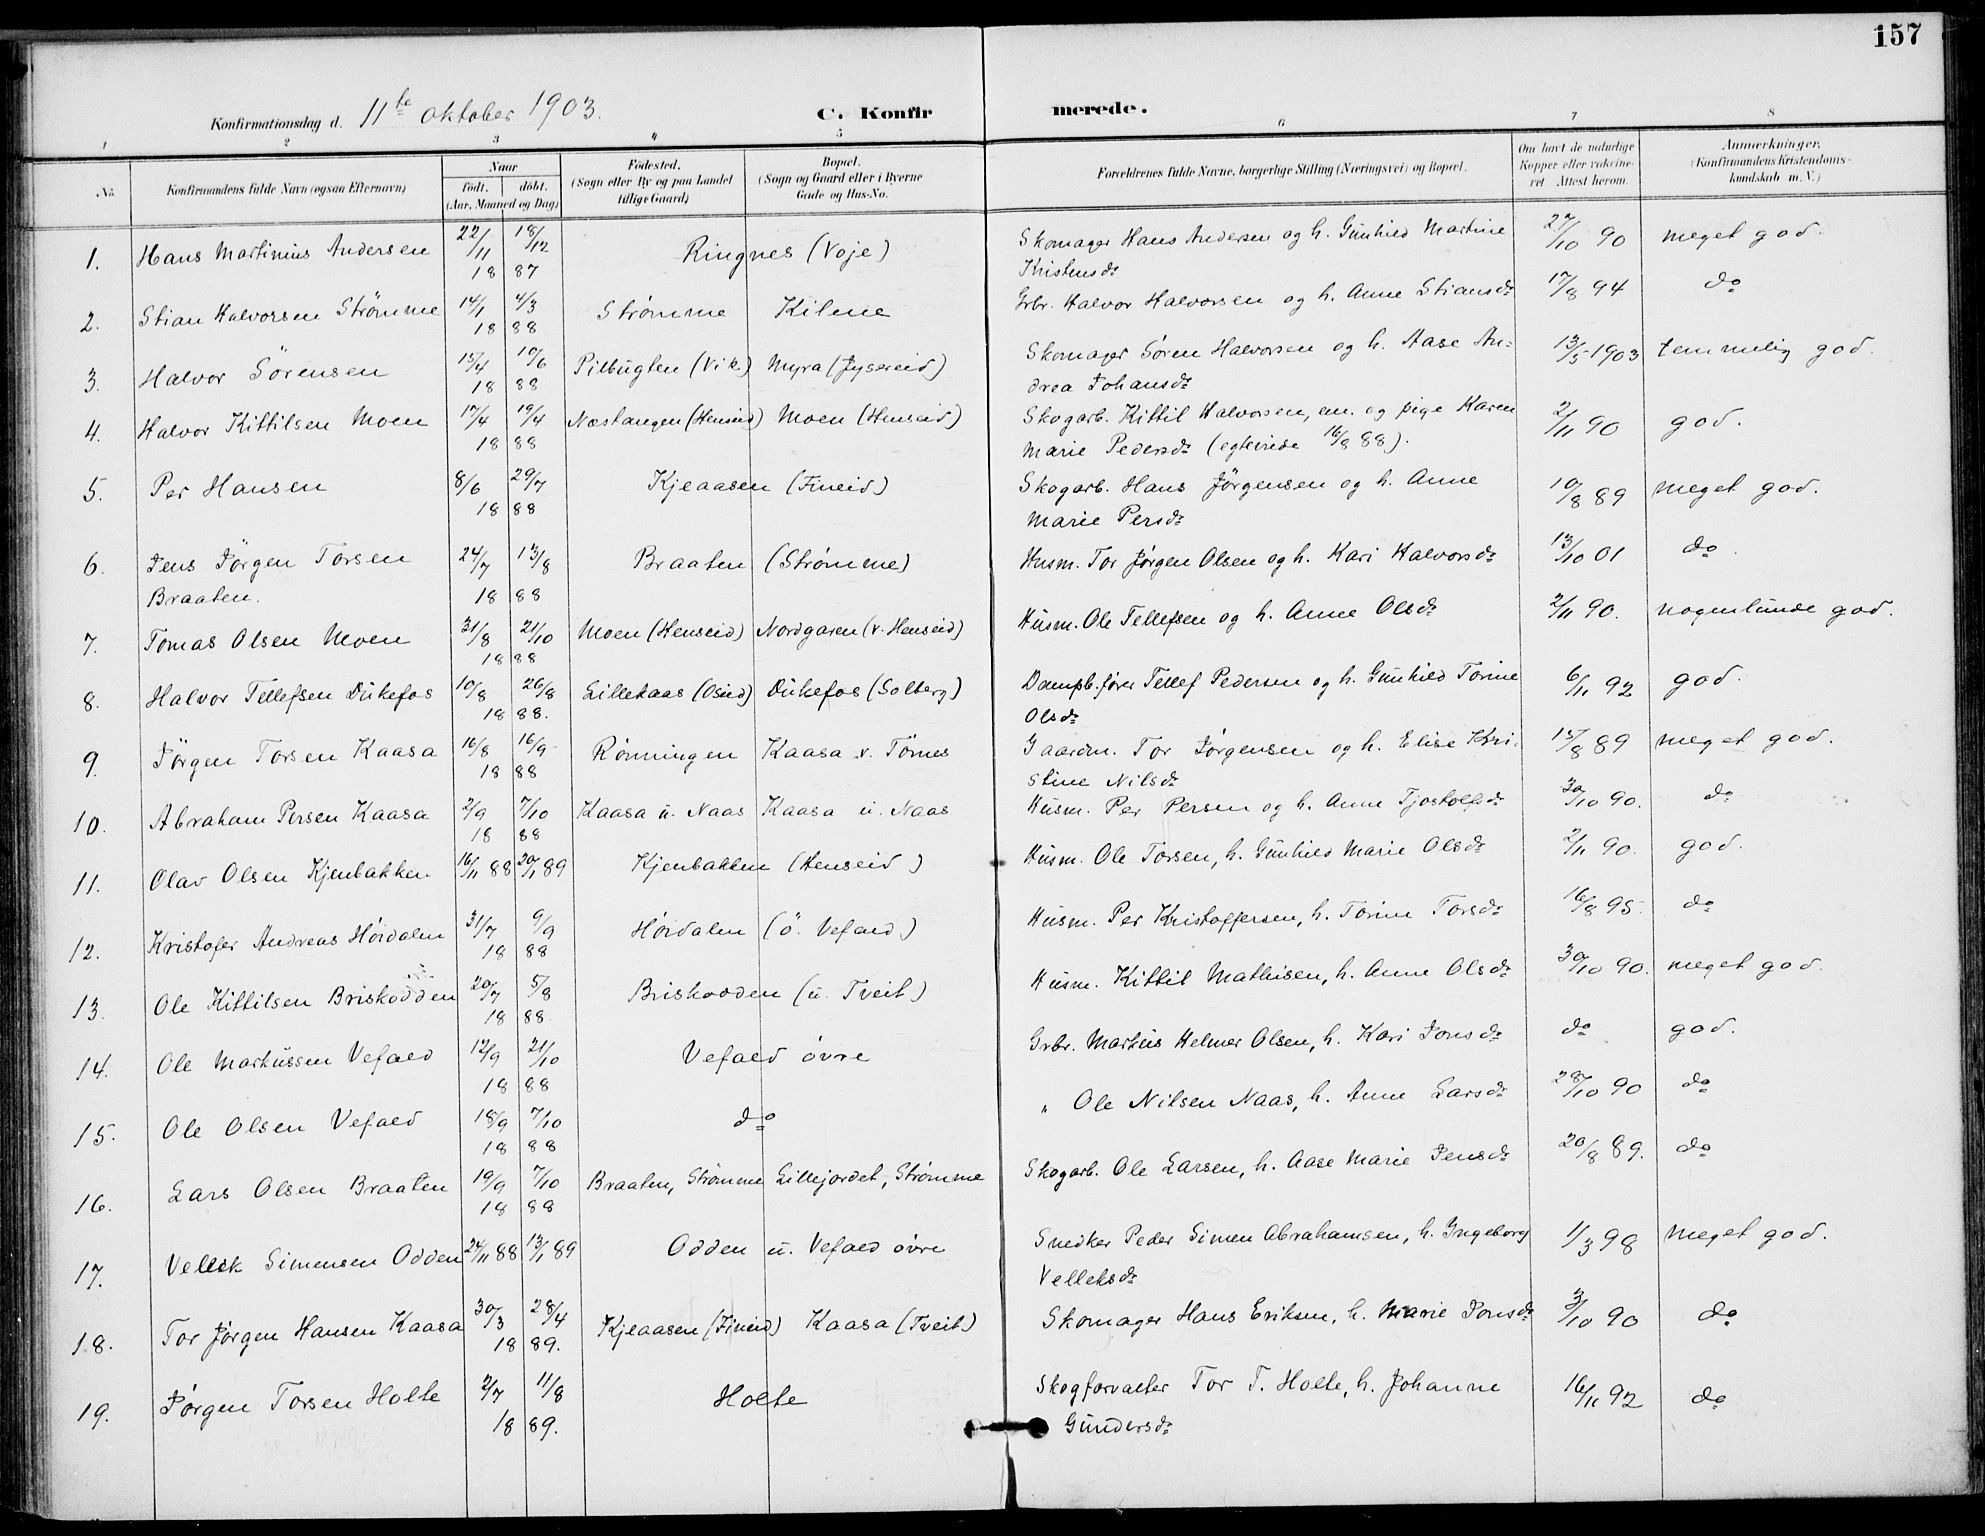 157
Konfirmationsdag d. 11te oktober 1903. C. Konfirmerede.
1 2 3 4 5 6 7 8
No. Konfirmandens fulde Navn (ogsaa Efternavn) Naar født. døbt. (Aar, Maaned og Dag) Fødested. (Sogn eller By og paa Landet tillige Gaard) Bopæl. (Sogn og Gaard eller i Byerne Gade og Hus-No. Forældrenes fulde Navne, borgerlige Stilling (Næringsvei) og Bopæl. Om havt de naturlige Kopper eller vakcineret. Attest herom. Anmærkninger. (Konfirmandens Kristendomskundskab m. V.)
1. Hans Martinius Andersen 22/11 18/12 1887 Ringnes (Voje) Skomager Hans Andersen og h. Gunhild Martine Kristensdr 27/10 90 meget god.
2. Stian Halvorsen Strømme 14/1 4/3 1888 Strømme Kilene Grbr. Halvor Halvorsen og h. Anne Stiansdr 17/8 94 do
3. Halvor Sörensen 15/4 10/6 1888 Pilbugten (Vik) Myra (Jysereid) Skomager Søren Halvorsen og h. Aase Andrea Johansdr 13/5 1903 temmelig god.
4. Halvor Kittilsen Moen 17/4 19/4 1888 Næstangen (Henseid) Moen (Henseid) Skogarb. Kittil Halvorsen, em. og pige Karen Marie Pedersdr (egteviede 16/8 88). 2/11 90 god.
5. Per Hansen 8/6 29/7 1888 Kjeaasen (Fineid) Skogarb. Hans Jörgensen og h. Anne Marie Persdr 10/8 89 meget god.
6. Jens Jörgen Torsen Braaten. 24/7 13/8 1888 Braaten (Strømme) Husm. Tor Jørgen Olsen og h. Kari Halvorsdr 13/10 01 do.
7. Tomas Olsen Moen 31/8 21/10 1888 Moen (Henseid) Nordgaren (v. Henseid) Husm. Ole Tellefsen og h. Anne Olsdr 2/11 90. nogenlunde god.
8. Halvor Tellefsen Dukefos 10/8 26/8 1888. Lillekaas (Oseid) Dukefos (Solberg) Dampb.fører Tellef Pedersen og h. Gunhild Torine Olsdr 6/11 92 god.
9. Jörgen Torsen Kaasa 16/8 16/9 1888 Rønningen Kaasa v. Tørnes Gaardm. Tor Jørgensen og h. Elise Kristine Nilsdr 15/8 89 meget god.
10. Abraham Persen Kaasa 2/9 7/10 1888 Kaasa u. Naas Kaasa u. Naas Husm. Per Persen og h. Anne Tjostolfsdr 30/10 90. do
11. Olav Olsen Kjenbakken 16/11 88 20/1 89 Kjenbakken (Henseid) Husm. Ole Torsen, h. Gunhild Marie Olsdr 2/11 90. god.
12. Kristofer Andreas Høidalen 31/7 9/9 1888 Høidalen (ö. Vefald) Husm. Per Kristoffersen, h. Torine Torsdr 16/8 95. do
13. Ole Kittilsen Briskodden 20/7 5/8 1888. Briskodden (u. Tveit) Husm. Kittil Mathisen, h. Anne Olsdr 30/10 90. meget god.
14. Ole Markussen Vefald 12/9 21/10 1888 Vefald övre Grbr. Markus Helmer Olsen, h. Kari Jonsdr do god.
15. Ole Olsen Vefald 18/9 7/10 1888 do " Ole Nilsen Naas, h. Anne Larsdr 28/10 90 do
16. Lars Olsen Braaten 19/9 7/10 1888 Braaten, Strømme Lillejordet, Strømme Skogarb. Ole Larsen, h. Aase Marie Jensdr 20/8 89. do
17. Vellek Simensen Odden 24/11 88 13/1 89 Odden u. Vefald övre Snedker Peder Simen Abrahamsen, h. Ingeborg Velleksdr 1/3 98 meget god.
18. Tor Jørgen Hansen Kaasa 30/3 28/4 1889. Kjeaasen (Fineid) Kaasa (Tveit) Skomager Hans Eriksen, h. Marie Jonsdr 3/10 90 do
19. Jørgen Torsen Holte 2/7 11/8 1889. Holte Skogforvalter Tor T. Holte, h. Johanne Gundersdr 16/11 92 do